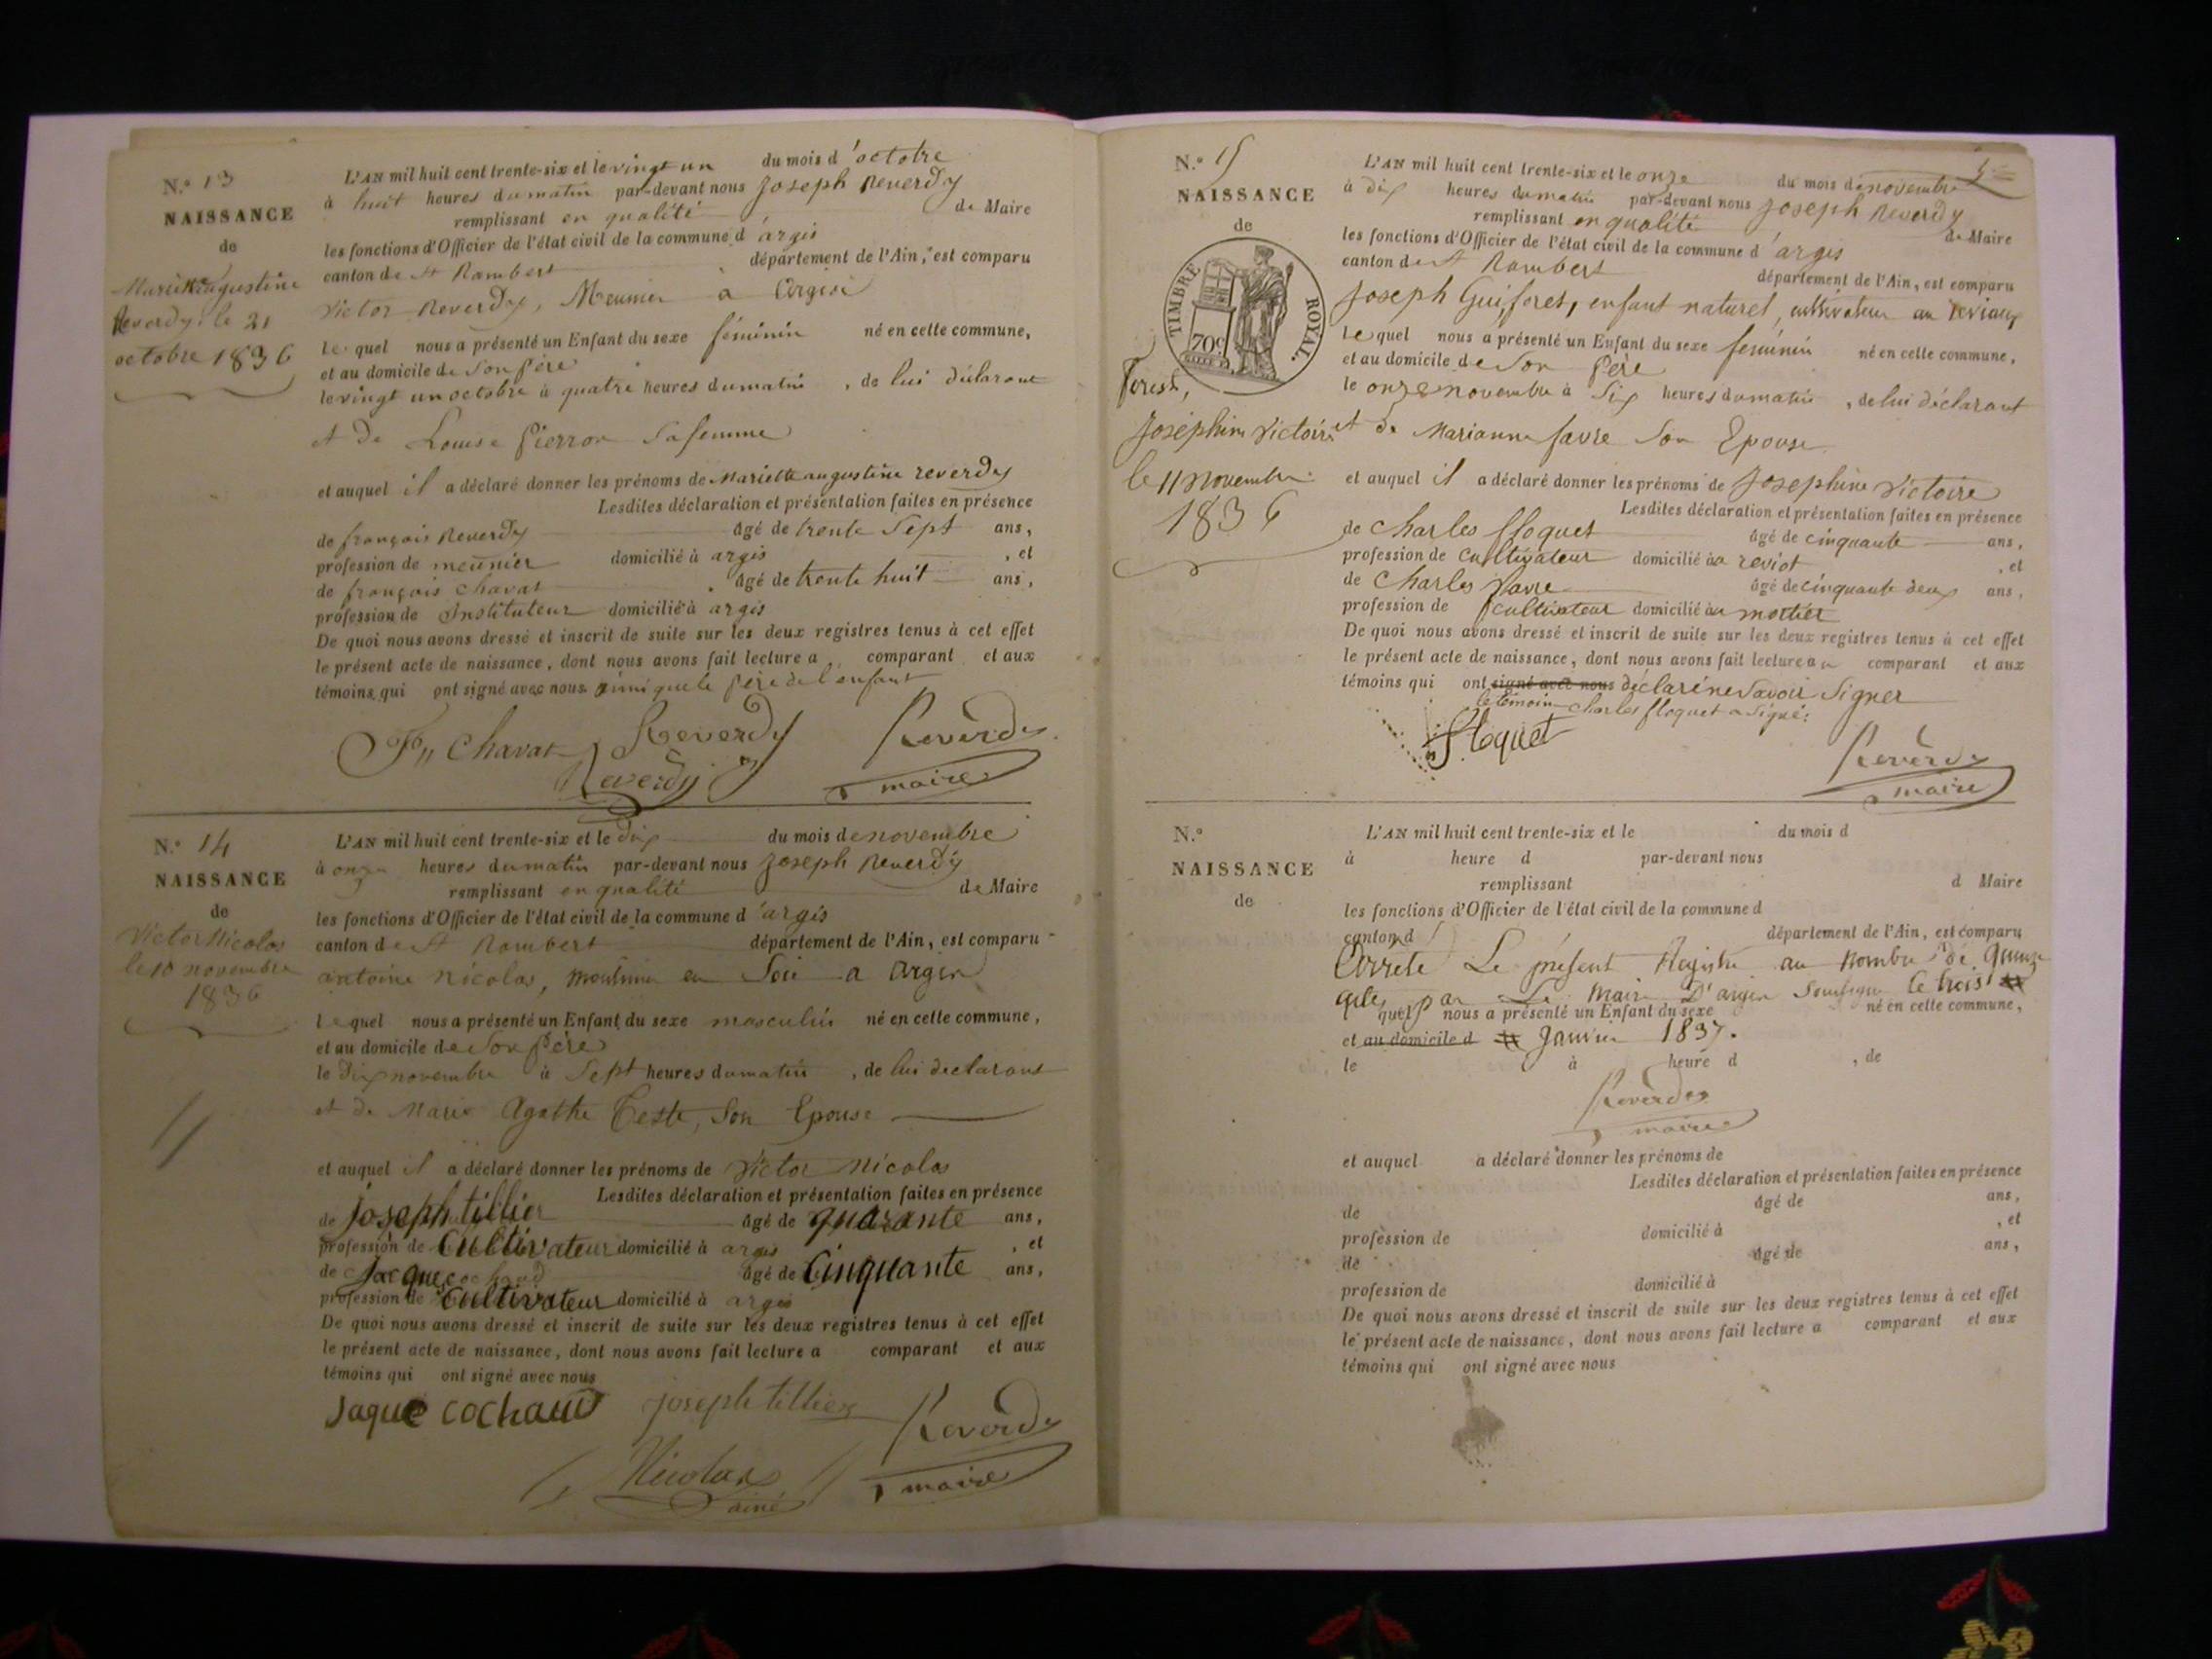 N.° 13
NAISSANCE
de
Mariette augustine
Reverdy, le 21
octobre 1836
L'AN mil huit cent trente-six et le vingt un du mois d'octobre
à huit heures du matin par-devant nous Joseph Reverdy
remplissant en qualité de Maire
les fonctions d'Officier de l'état civil de la commune d'argis
canton de St Rambert département de l'Ain, est comparu
Victor Reverdy, Meunier a
le quel nous a présenté un Enfant du sexe féminin né en cette commune,
et au domicile de Son Père
le vingt un octobre à quatre heures du matin, de lui déclarant
et de Louise Pierron Sa femme
et auquel il a déclaré donner les prénoms de Mariette augustine reverdy
Lesdites déclaration et présentation faites en présence
de françois Reverdy âgé de trente Sept ans,
profession de meunier domicilié à argis, et
de françois Chavat âgé de trente huit ans,
profession de Instituteur domicilié à argis
De quoi nous avons dressé et inscrit de suite sur les deux registres tenus à cet effet
le présent acte de naissance, dont nous avons fait lecture a comparant et aux
témoins qui ont signé avec nous ainsi que le Père de l'enfant
Fs Chavat Reverdy Reverdy
Reverdy maire
N.° 14
NAISSANCE
de
Victor Nicolas
le 10 novembre
1836
L'AN mil huit cent trente-six et le dix du mois de novembre
à onze heures du matin par-devant nous Joseph Reverdy
remplissant en qualité de Maire
les fonctions d'Officier de l'état civil de la commune d'argis
canton de St Rambert département de l'Ain, est comparu
antoine Nicolas, en Soie a argis
lequel nous a présenté un Enfant du sexe masculin né en cette commune,
et au domicile de Son Père
le Dix novembre à Sept heures du matin, de lui declarant
et de Marie Agathe Teste, Son Epouse
et auquel il a déclaré donner les prénoms de Victor Nicolas
Lesdites déclaration et présentation faites en présence
de joseph tillier âgé de quarante ans,
profession de Cultivateur domicilié à argis, et
de Jacque cochaud âgé de Cinquante ans,
profession de Cultivateur domicilié à argis
De quoi nous avons dressé et inscrit de suite sur les deux registres tenus à cet effet
le présent acte de naissance, dont nous avons fait lecture a comparant et aux
témoins qui ont signé avec nous
Jaque cochaud joseph tillier Reverdy
Nicolas maire
ainé
N.° 15
NAISSANCE
de
TIMBRE ROYAL.
70c
forest,
Joséphine Victoire
le 11 novembre
1836
L'AN mil huit cent trente-six et le onze du mois de novembre
à dix heures du matin par-devant nous Joseph Reverdy
remplissant en qualité de Maire
les fonctions d'Officier de l'état civil de la commune d'argis
canton de St Rambert département de l'Ain, est comparu
Joseph Gui, foret, enfant naturel, cultivateur au
Lequel nous a présenté un Enfant du sexe feminin né en cette commune,
et au domicile de Son Père
le onze novembre à Six heures du matin, de lui déclarant
et de Marianne favre Son Epouse
et auquel il a déclaré donner les prénoms de Joséphine Victoire
Lesdites déclaration et présentation faites en présence
de Charles floquet âgé de cinquante ans,
profession de cultivateur domicilié au reviot, et
de Charles favre âgé de cinquante deux ans,
profession de cultivateur domicilié au mortier
De quoi nous avons dressé et inscrit de suite sur les deux registres tenus à cet effet
le présent acte de naissance, dont nous avons fait lecture au comparant et aux
témoins qui ont signé avec nous déclaré ne Savoir Signer
le témoin Charles floquet a Signé:
floquet Reverdy
maire
N.°
NAISSANCE
de
L'AN mil huit cent trente-six et le du mois d
à heure d par-devant nous
remplissant d Maire
les fonctions d'Officier de l'état civil de la commune d
canton d département de l'Ain, est comparu
Arrêté Le présent Registre au nombre de quinze
actes par Le Maire D'argis Soussigné le trois
quel nous a présenté un Enfant du sexe né en cette commune,
et au domicile d Janvier 1837.
le à heure d, de
Reverdy
maire
et auquel a déclaré donner les prénoms de
Lesdites déclaration et présentation faites en présence
de âgé de ans,
profession de domicilié à, et
de âgé de ans,
profession de domicilié à
De quoi nous avons dressé et inscrit de suite sur les deux registres tenus à cet effet
le présent acte de naissance, dont nous avons fait lecture a comparant et aux
témoins qui ont signé avec nous